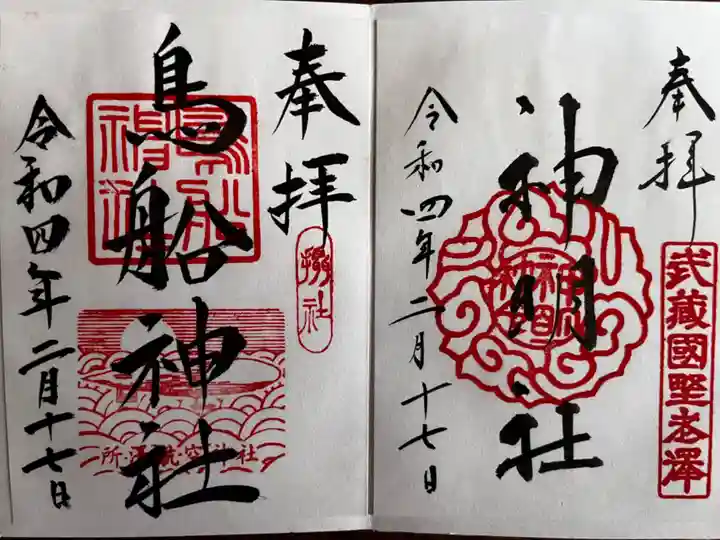 奉拝
武蔵國野老澤
神明社
令和四年二月十七日
奉拝
摂社
鳥船神社
所澤航空神社
令和四年二月十七日